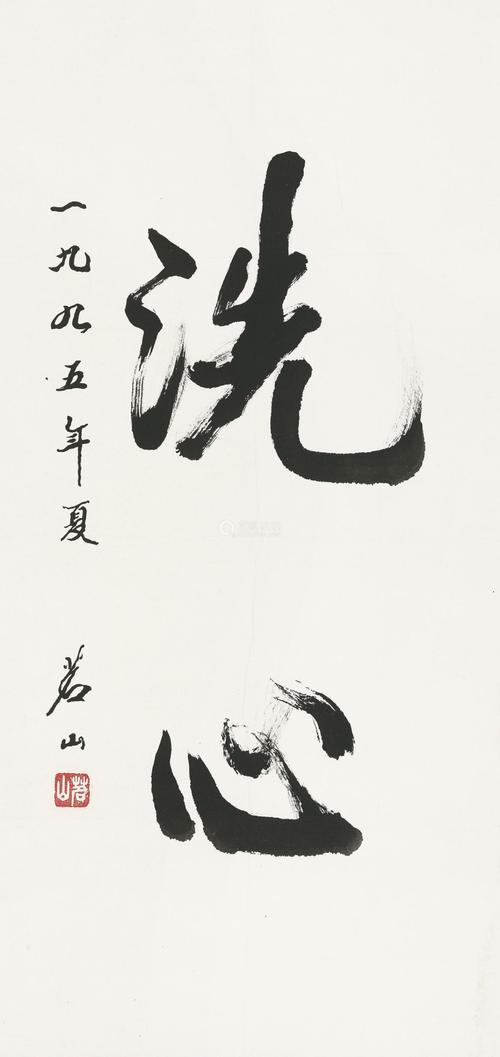 洗心
一九九五年夏
若山